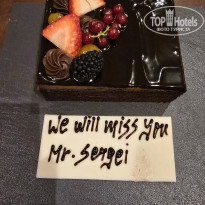 TOP Hotels
ФОТО ТУРИСТА
We will miss you
Mr. Sergei